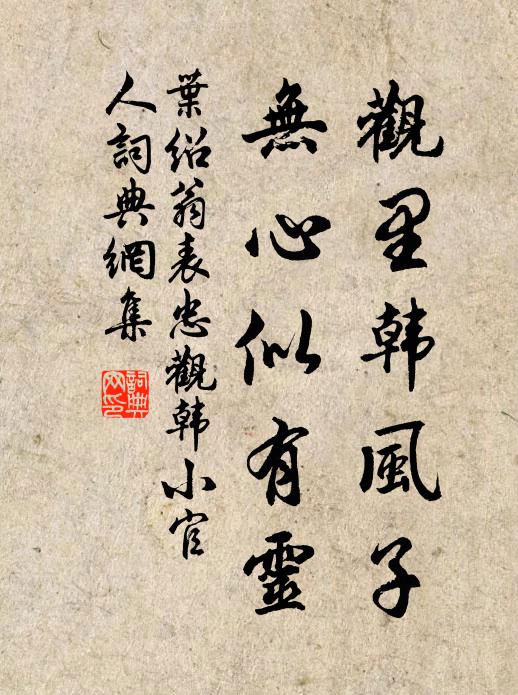 觀里韩風子
無心似有靈
葉紹翁表忠觀韩小官
人詞典網集
詞典
网印